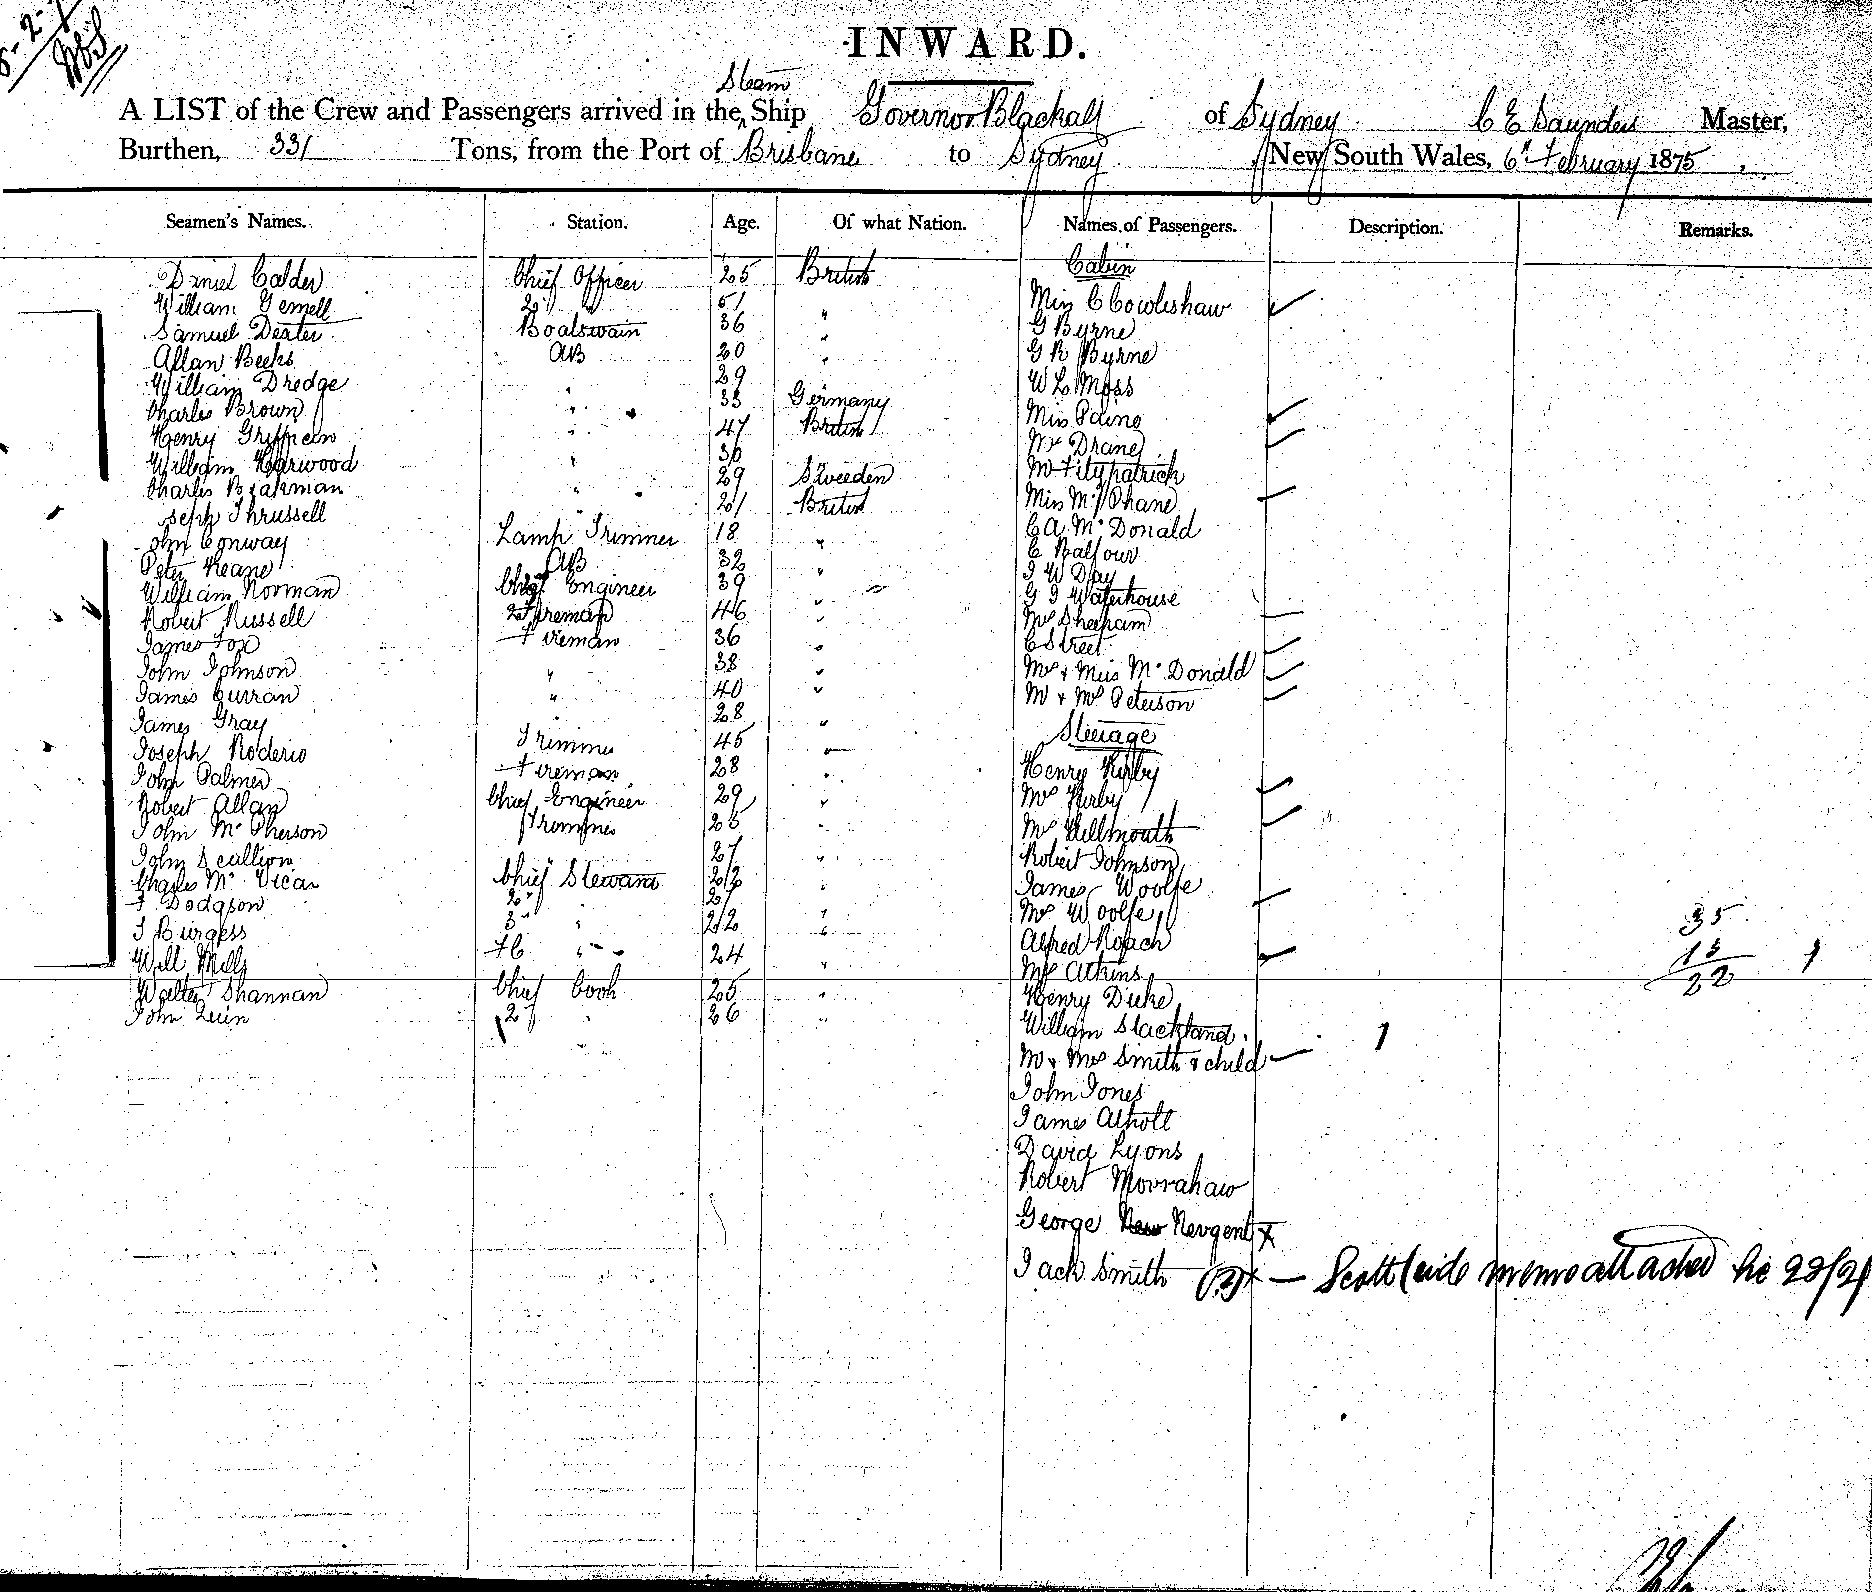 INWARD.
Steam
A LIST of the Crew and Passengers arrived in the Ship Governor Blackall of Sydney C E Saunders Master,
Burthen, 331 Tons, from the Port of Brisbane to Sydney New South Wales, 6th February 1875
Seamen's Names. Station. Age. Of what Nation. Names of Passengers. Description. Remarks.
Daniel Calder Chief Officer 25 British Cabin
William Gemell 2d " 51 " Miss C Cowlishaw
Samuel Dexter Boatswain 36 " G Byrne
Allan Beeks AB 20 " G R Byrne
William Dredge " 29 W L Moss
Charles Brown " 33 Germany Miss Paine
Henry " 47 British Mr Drane
William Harwood " 36 Mr Fitzpatrick
Charles " 29 Sweeden Miss
Joseph Thrussell " 21 British C A McDonald
John Conway Lamp Trimmer 18 " C Balfour
Peter Keane AB 32 " J W Day
William Norman Chief Engineer 39 " G J Waterhouse
Robert Russell 2d Fireman 46 " Mrs
James Fox Fireman 36 " C Street
John Johnson " 38 " Mrs & Miss McDonald
James Curran " 40 " Mr & Mrs Peterson
James Gray " 28 " Steerage
Joseph Roderio Trimmer 45 " Henry Kirby
John Palmer Fireman 28 " Mrs Kirby
Robert Allan Chief Engineer 29 " Mrs Hellmouth
John McPherson Trimmer 25 " Robert Johnson
John Scallion " 27 " James Woolfe
Charles McVicar Chief Steward 22 " Mrs Woolfe
F Dodgson 2d " 27 " Alfred Roach
J Burgess 3d " 22 " Mrs Atkins
Will Mills " 24 " Henry Duke
Walter Shannan Chief Cook 25 " William Slackland
John Quin 2d " 26 " Mr & Mrs Smith & child
John Jones
James Atholl
David Lyons
Robert Movrahaw
George Nevgent x
Jack Smith — Scott memo attached
35
13
22